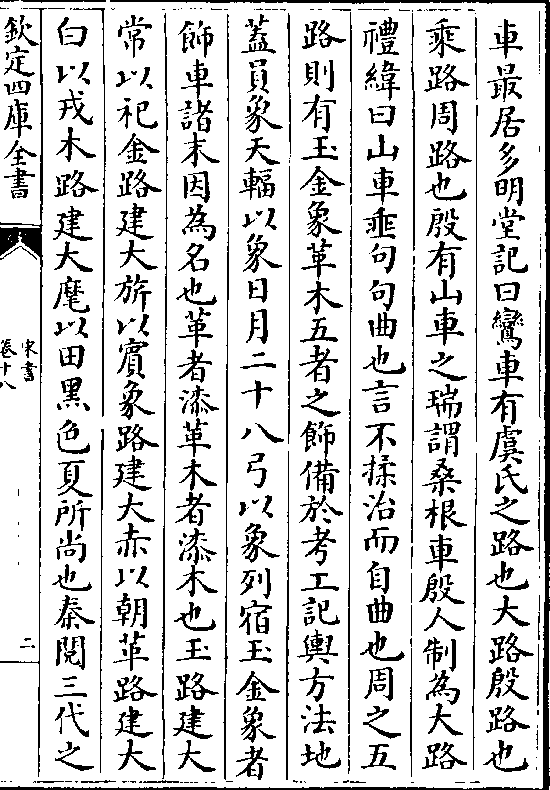 車最居多明堂記曰鸞車有虞氏之路也大路殷路也
乘路周路也殷有山車之瑞謂桑根車殷人制為大路
禮緯曰山車垂句句曲也言不揉治而自曲也周之五
路則有玉金象革木五者之飾備於考工記輿方法地
蓋員象天輻以象日月二十八弓以象列宿玉金象者
飾車諸末因為名也革者漆革木者漆木也玉路建大
常以祀金路建大旂以賓象路建大赤以朝革路建大
白以戎木路建大麾以田黑色夏所尚也秦閱三代之
欽定四庫全書
宋書
卷十八
二